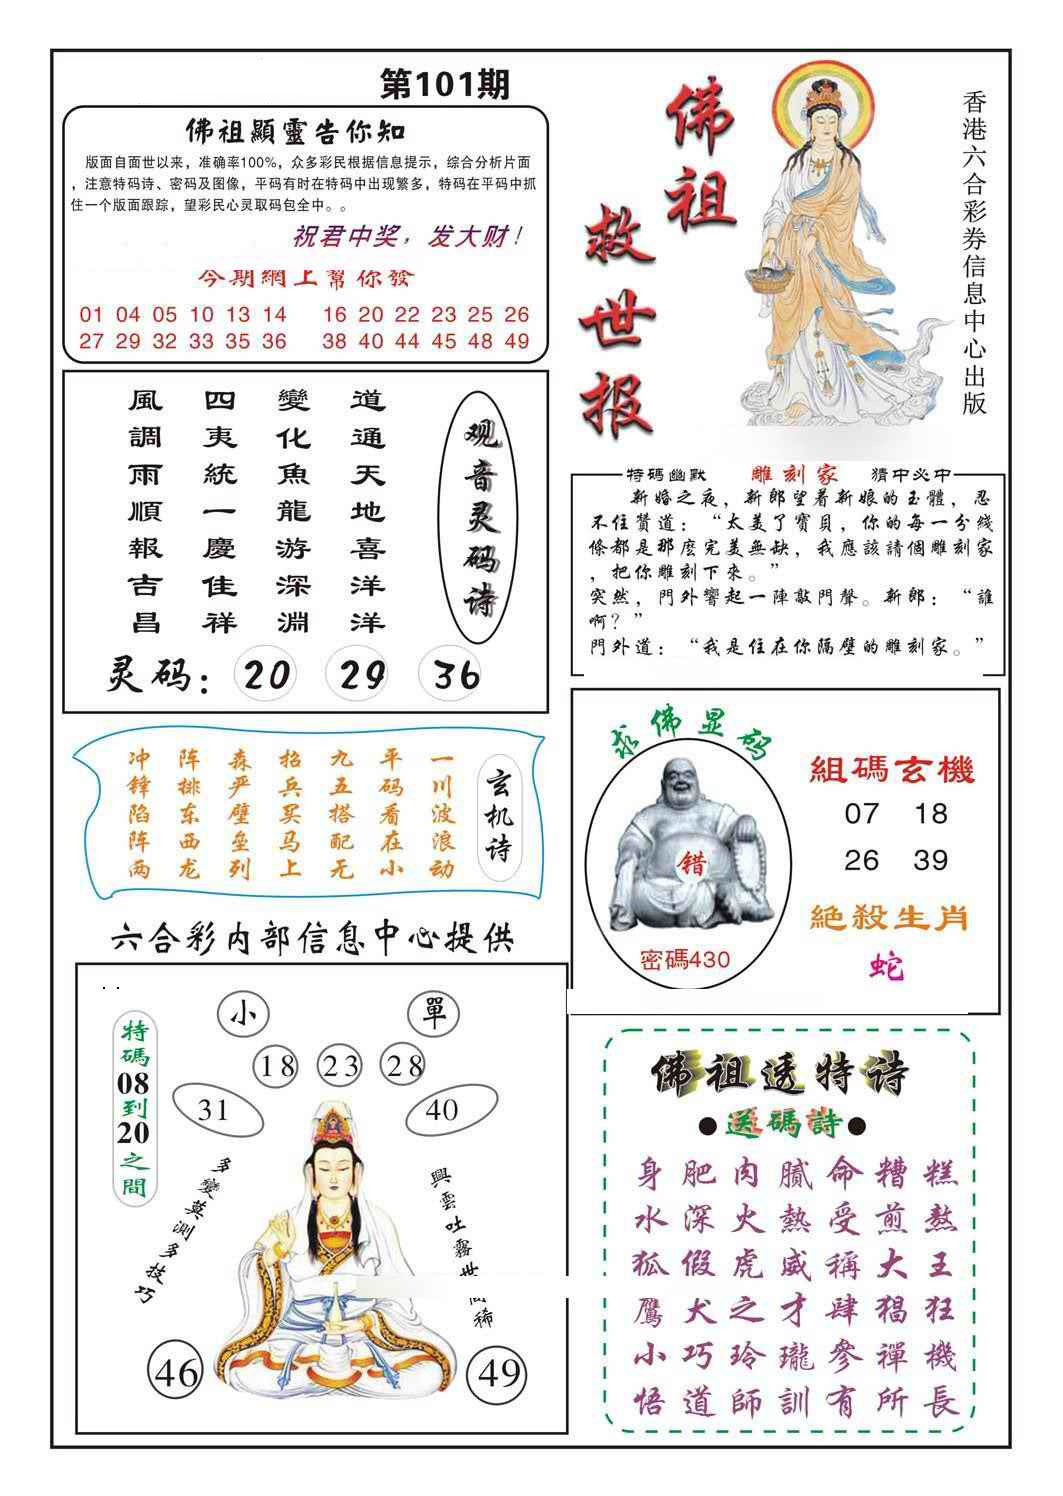 第101期
佛祖顯靈告你知
版面自面世以来，准确率100%，众多彩民根据信息提示，综合分析片面
，注意特码诗、密码及图像，平码有时在特码中出现繁多，特码在平码中抓
住一个版面跟踪，望彩民心灵取码包全中。。
祝君中奖，发大财！
今期網上幫你發
01 04 05 10 13 14 16 20 22 23 25 26
27 29 32 33 35 36 38 40 44 45 48 49
佛祖
救世报
香港六合彩券信息中心出版
观音灵码诗
道通天地喜洋洋
變化魚龍游深淵
四夷統一慶佳祥
風調雨順報吉昌
灵码：20 29 36
特碼幽默 雕刻家 猜中必中
新婚之夜，新郎望着新娘的玉體，忍
不住贊道：“太美了寶貝，你的每一分綫
條都是那麽完美無缺，我應該請個雕刻家
，把你雕刻下來。”
突然，門外響起一陣敲門聲。新郎：“誰
啊？”
門外道：“我是住在你隔壁的雕刻家。”
玄机诗
一川波浪动
平码看在小
九五搭配无
招兵买马上
森严壁垒列
阵排东西龙
冲锋陷阵两
求佛显码
错
密碼430
組碼玄機
07 18
26 39
絕殺生肖
蛇
六合彩内部信息中心提供
特碼08到20之間
小
單
18 23 28
31
40
多變莫測多技巧
興雲吐霧世稀
46
49
佛祖透特诗
●送碼詩●
身肥肉膩命糟糕
水深火熱受煎熬
狐假虎威稱大王
鷹犬之才肆猖狂
小巧玲瓏參禪機
悟道師訓有所長